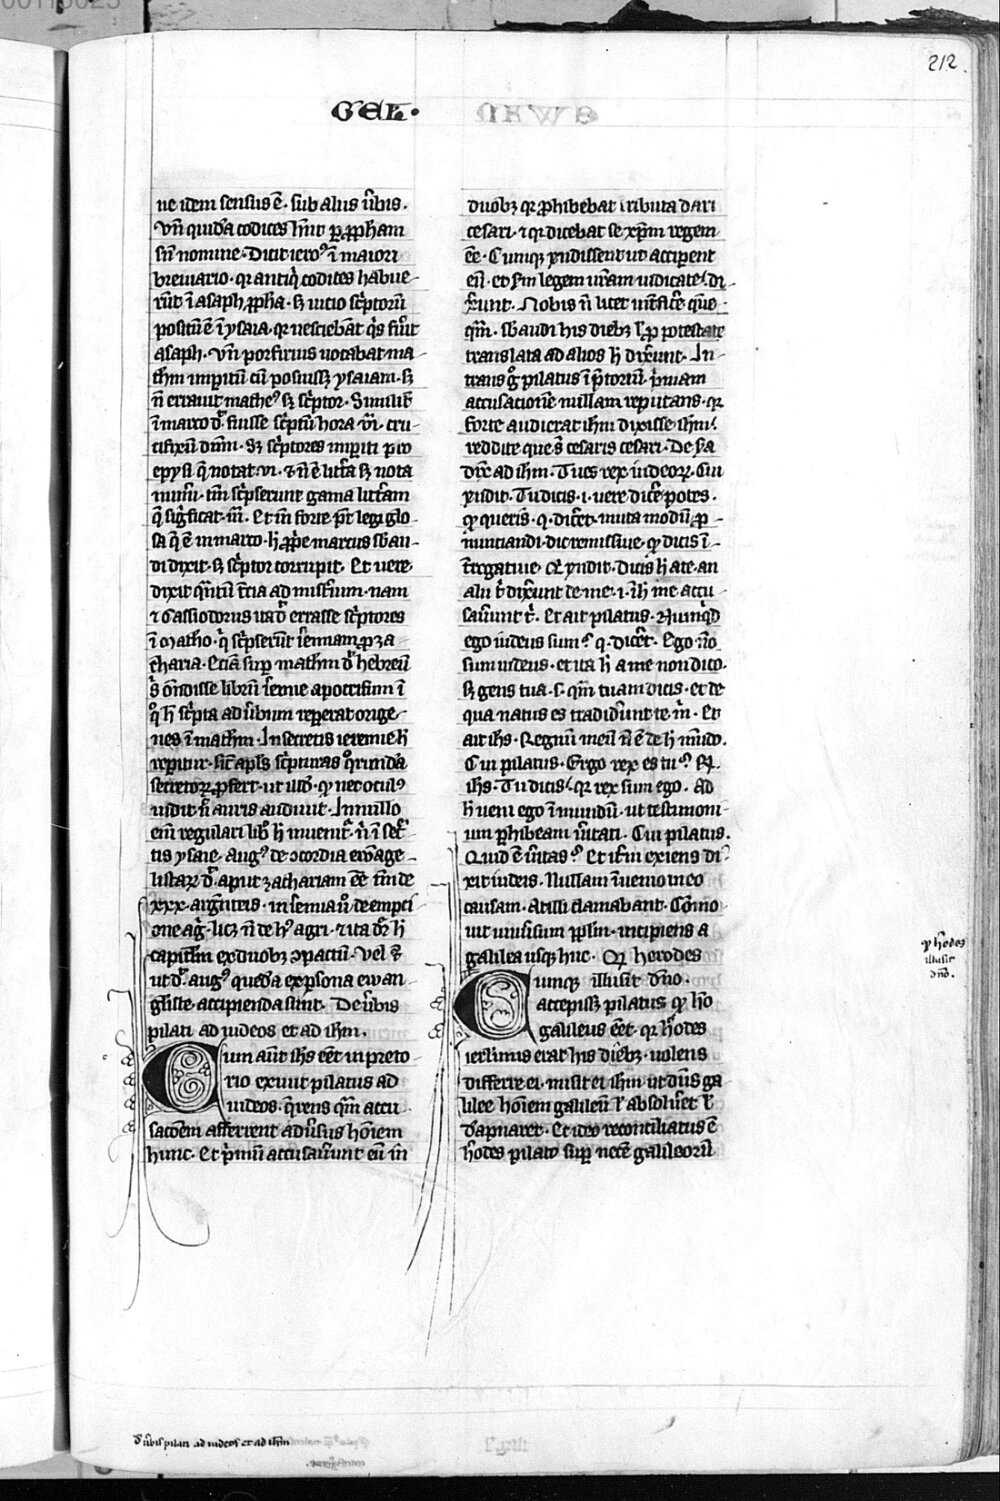 212.
GEL.
ne idem sensus ē. sub aliis ūbis.
vn̄ quidā codices hn̄t ꝑ ꝓpham
sn̄ nomine. Dicit iero⁹ ī maiori
breuiario. qꝛ antiq̄ codices habue-
rūt ī asaph ꝓpha. sꝫ uitio sc̄ptorū
positū ē ī ysaia. qꝛ nesciebāt q̄s fuīt
asaph. vn̄ porfirius uocabat ma-
thm̄ imꝑitū cū posuissꝫ ysaiam. sꝫ
n̄ errauit mathe⁹ sꝫ sc̄ptor. Similit̄
ī marco dr̄ fuisse sc̄ptū hora vi. cru-
cifixū dnm̄. Sꝫ sc̄ptores imꝑiti pro
epysi q̄ notat .vi. ⁊ n̄ ē litt̄a sꝫ nota
num̄i. tm̄ sc̄pserunt gama litt̄am
q̄ siḡficat .iii. Et īn forte pr̄ legi glo-
sa q̄ ē in marco. h ꝓpe marcus sb̄au-
di dixit. sꝫ sc̄ptor corrupit. Et uere
dixit qn̄tū t̄cia ad mist̄ium. nam
⁊ Cassiodorus ita dr̄ errasse sc̄ptores
ī matho. q̄ sc̄pserūt ieremiam ꝓ za-
charia. Etiā suꝑ mathm̄ dr̄ hebreū
q̄ h̄ sc̄pta ad ūbum repperat orige-
nes ī mathm̄. In secretis ieremie h̄
reꝑitur. sic̄ apl̄s sc̄pturas
secretoꝝ ꝓfert. ut illd̄. qꝫ nec ocul⁹
uidit n̄ auris audiuit. In nullo
eni regulari lib̄o h̄ inuenit̄. n̄ ī sec̄-
tis ysaie. Aug⁹ de ↄcordia ewāge-
listaꝝ dr̄ aput zachariam ēē tm̄ de
xxx. arḡnteis. in iēmia ū de empti-
one aḡ. licꝫ n̄ de h⁹ agri. ⁊ ita dr̄ h̄
capitlm̄ ex duobꝫ ↄpactū. vel ē
ut dr̄ aug⁹ quedā ex ꝑsona ewan-
gliste accipienda sunt. De ūbis
pilati ad iudeos et ad ihm̄.
Cum aūt ihs ēēt in preto-
rio exiuit pilatus ad
iudeos. q̄rens qm̄ accu-
sacōem afferrent adūsus hōiem
hunc. Et p̄mū accusauēunt eū in
duobꝫ qꝛ ꝓhibebat tributa dari
cesari. ⁊ qꝛ dicebat se xp̄m regem
ēē. Cumqꝫ r̄ndissent ut acciperent
eū. et sm̄ legem ur̄am iudicate. di-
xēunt. Nobis n̄ licet int̄fic̄e quēo
qm̄. sb̄audi his diebꝫ
translata ad alios h̄ dixēunt. In-
trans g̊ pilatus ī p̄toriū p̄mam
accusacionē nullam reputans. qꝛ
forte audierat ihm̄ dixisse ihm̄.
reddite que s̄ cesaris cesari. De sa
dix̄ ad ihm̄. Tu es rex iudeoꝝ. Cui
r̄ndit. Tu dicis .i. uere dic̄e potes.
qꝫ queris. q. dic̄et. muta modū ꝓ-
nunciandi. dic remissiue. qꝫ dicis ī-
t̄rogatiue. Qui r̄ndit. Dicis h̄ a te. an
alii t̄ dixēunt de me .i. ih̄ me accu-
sauēunt t̄. Et ait pilatus. Nunq̄d
ego iudeus sum? q. dic̄et. Ego nō
sum iudeus. et ita h̄ a me non dico.
sꝫ gens tua .s. qm̄ tuam dicis. et de
qua natus es tradidēunt te m̄. Et
ait ihs. Regnū meū n̄ ē de h̄ mūdo.
Cui pilatus. Ergo rex es tu? R̄.
ihs. Tu dicis. qꝛ rex sum ego. Ad
h̄ ueni ego ī mundū. ut testimoni-
um ꝑhibeam ūitati. Cui pilatus.
Quid ē ūitas? Et itm̄ exiens di-
xit iudeis. Nullam īuenio in eo
causam. At illi clamabant. Cōmo-
uit uniūsum ppl̄m. incipiens a
galilea usqꝫ huc. Qꝛ herodes
Cumqꝫ illusit dn̄o.
accepissꝫ pilatus qꝫ hō
galileus ēēt. qꝛ h̄odes
ierl̄imis erat his diēbꝫ. uolens
differre ei. misit ei ihm̄ ut dn̄s ga-
lilee hōiem galileū ł absoluēt ł
dāpnaret. Et ideo reconciliatus ē
h̄odes pilato suꝑ necē galileorū
qꝫ h̄odes
illusit
dn̄o.
d̄ ūbis pilati ad iudeos et ad ihm̄